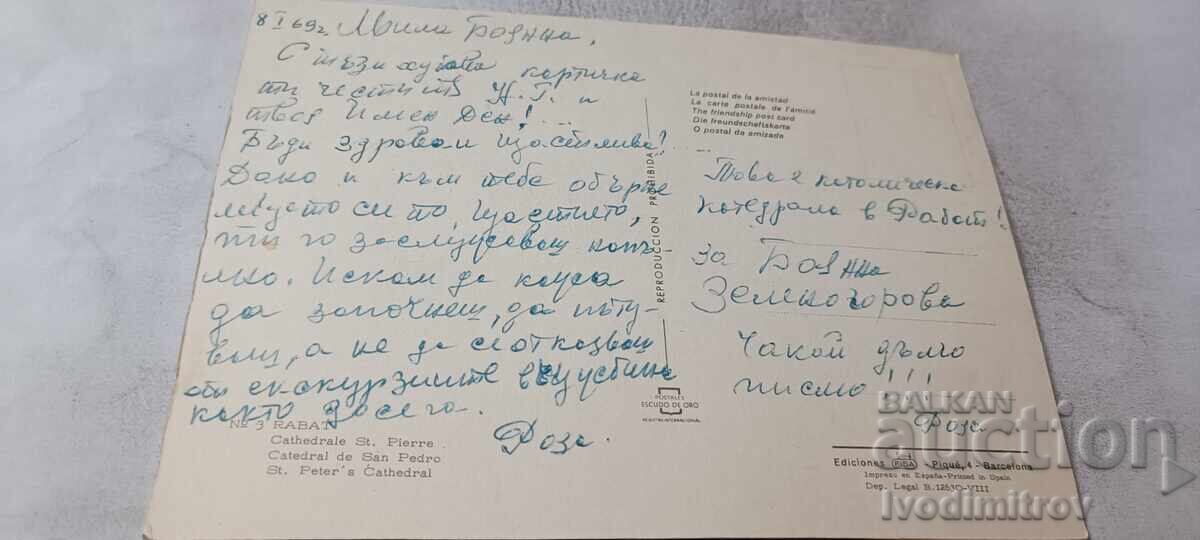 8 I 69г. Мила Боянна,
С тъзи хубава картичка
ти честитя Н.Г. и
твоя Имен Ден! ...
Бъди здрава и щастлива! ...
Дано и към тебе обърне
лицето си то, щастието,
ти го заслужаваш
Искам да
да започнеш, да пъту-
ваш, а не да се отказваш
от екскурзиите в чужбина
както досега.
Роза.
La postal de la amistad
La carte postale de l'amitié
The friendship post card
Die freundschaftskarte
O postal da amizade
Това е католическа
катедрала в Рабат!
За Боянна
Земногорова
Чакай дълго
писмо!!!
Роза
REPRODUCCION PROHIBIDA
POSTALES
ESCUDO DE ORO
REGISTRO INTERNACIONAL
Nº 3 RABAT
Cathedrale St. Pierre
Catedral de San Pedro
St. Peter's Cathedral
Ediciones FISA - Piqué, 4 - Barcelona
Impreso en España-Printed in Spain
Dep. Legal B. 12530-VIII
BALKAN
auction
Ivodimitrov